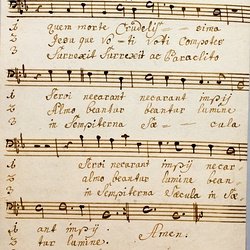 1 quem morte Crudelis- - sima
2 Jesu que vo - ti Voti Compotes
3 Surrexit Surrexit ac Paraclito
1 Servi necarant necarant impij
2 Almo beantur beantur lumine
3 in Sempiterna Sæ - - cula
1 Servi necarant impij necar-
2 almo beantur lumine bean-
3 in Sempiterna Sæcula in Sæ-
1 ant impij.
2 tur lumine. Amen.
3